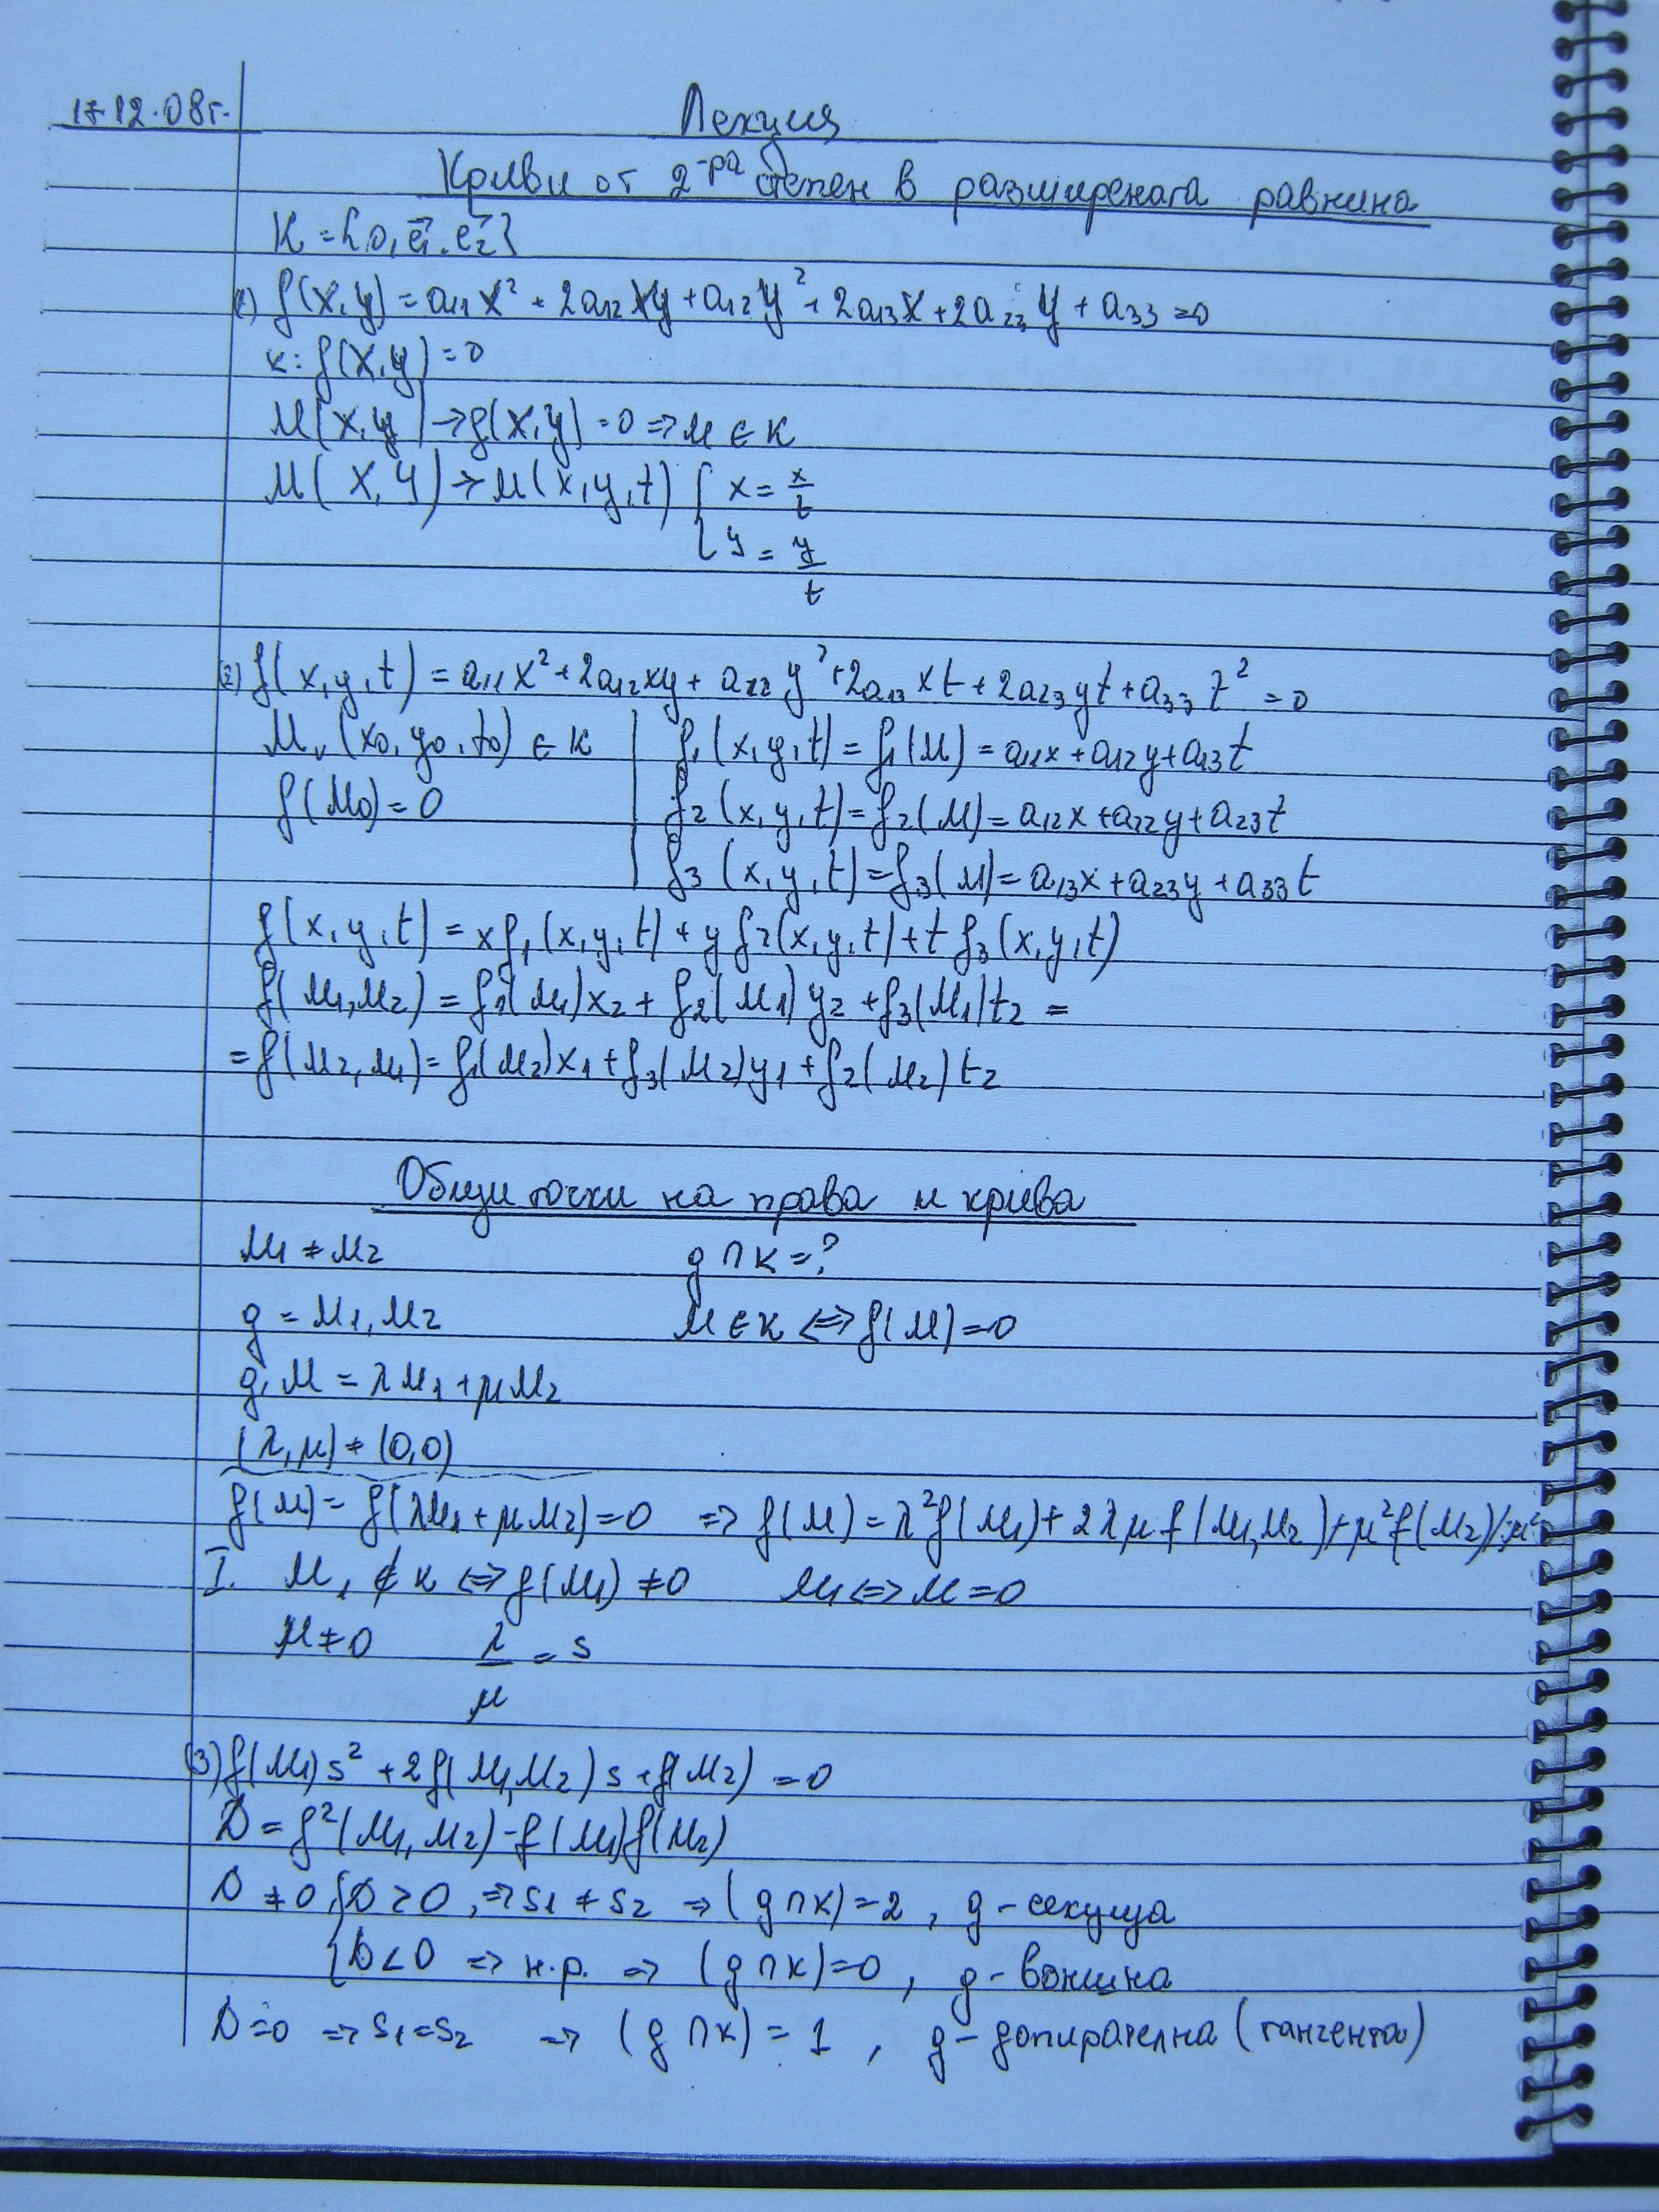 17.12.08г.
Лекция
Криви от 2-ра степен в разширената равнина
K = {0, e⃗₁, e⃗₂}
(1) f(x,y) = a₁₁x² + 2a₁₂xy + a₁₂y² + 2a₁₃x + 2a₂₃y + a₃₃ = 0
к: f(x,y) = 0
M(x,y) → f(x,y) = 0 ⇒ M ∈ K
M(X,Y) → M(x,y,t) { x = x/t
{ y = y/t
(2) f(x,y,t) = a₁₁x² + 2a₁₂xy + a₂₂y² + 2a₁₃xt + 2a₂₃yt + a₃₃t² = 0
M₀(x₀,y₀,t₀) ∈ K | f₁(x,y,t) = f₁(M) = a₁₁x + a₁₂y + a₁₃t
f(M₀) = 0 | f₂(x,y,t) = f₂(M) = a₁₂x + a₂₂y + a₂₃t
f₃(x,y,t) = f₃(M) = a₁₃x + a₂₃y + a₃₃t
f(x,y,t) = xf₁(x,y,t) + yf₂(x,y,t) + tf₃(x,y,t)
f(M₁,M₂) = f₁(M₁)x₂ + f₂(M₁)y₂ + f₃(M₁)t₂ =
= f(M₂,M₁) = f₁(M₂)x₁ + f₃(M₂)y₁ + f₂(M₂)t₂
Общи точки на права и крива
M₁ ≠ M₂ g ∩ к = ?
g = M₁, M₂ M ∈ к ⇔ f(M) = 0
g, M = λM₁ + μM₂
(λ,μ) ≠ (0,0)
f(M) = f(λM₁ + μM₂) = 0 ⇒ f(M) = λ²f(M₁) + 2λμf(M₁,M₂) + μ²f(M₂) /:μ²
I. M₁ ∉ к ⇔ f(M₁) ≠ 0 M₁ ⇔ M = 0
μ ≠ 0 λ/μ = s
(3) f(M₁)s² + 2f(M₁,M₂)s + f(M₂) = 0
D = f²(M₁,M₂) - f(M₁)f(M₂)
D ≠ 0 { D > 0, ⇒ s₁ ≠ s₂ ⇒ (g ∩ к) = 2, g - секуща
{ D < 0 ⇒ н.р. ⇒ (g ∩ к) = 0, g - външна
D = 0 ⇒ s₁ = s₂ ⇒ (g ∩ к) = 1, g - допирателна (тангента)